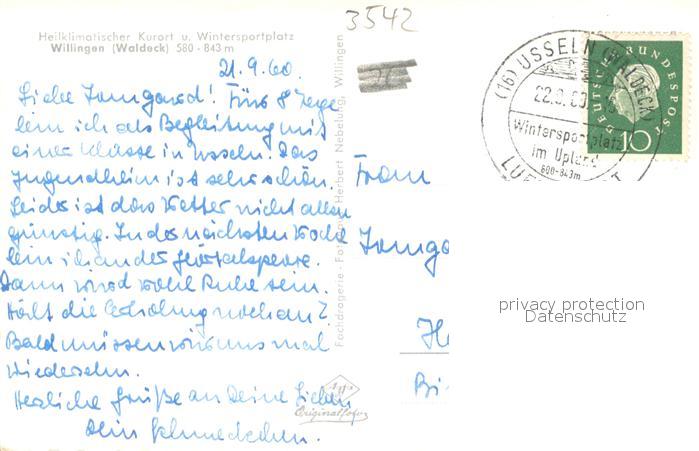 3542
Heilklimatischer Kurort u. Wintersportplatz
Willingen (Waldeck) 580 - 843 m
21.9.60.
Liebe Irmgard! Fürs 8 Tage
bin ich als Begleitung mit
einer Klasse in Usseln. Das
Jugendheim ist sehr schön.
Leider ist das Wetter nicht allzu
günstig. In der nächsten Woche
bin ich an der
Dann wird wohl Ruhe sein.
Hält die Erholung noch an?
Bald müssen wir uns mal
wiedersehn.
Herzliche Grüße an Deine Lieben
Dein
Fachdrogerie - Foto Herbert Nebelung, Willingen
Agfa
Originalfoto
(16) USSELN (WALDECK)
22.9.60
Wintersportplatz
im Upland
600-843m
LUF T
DEUTSCHE BUNDESPOST
10
Frau
Irmg
H
Bi
privacy protection
Datenschutz